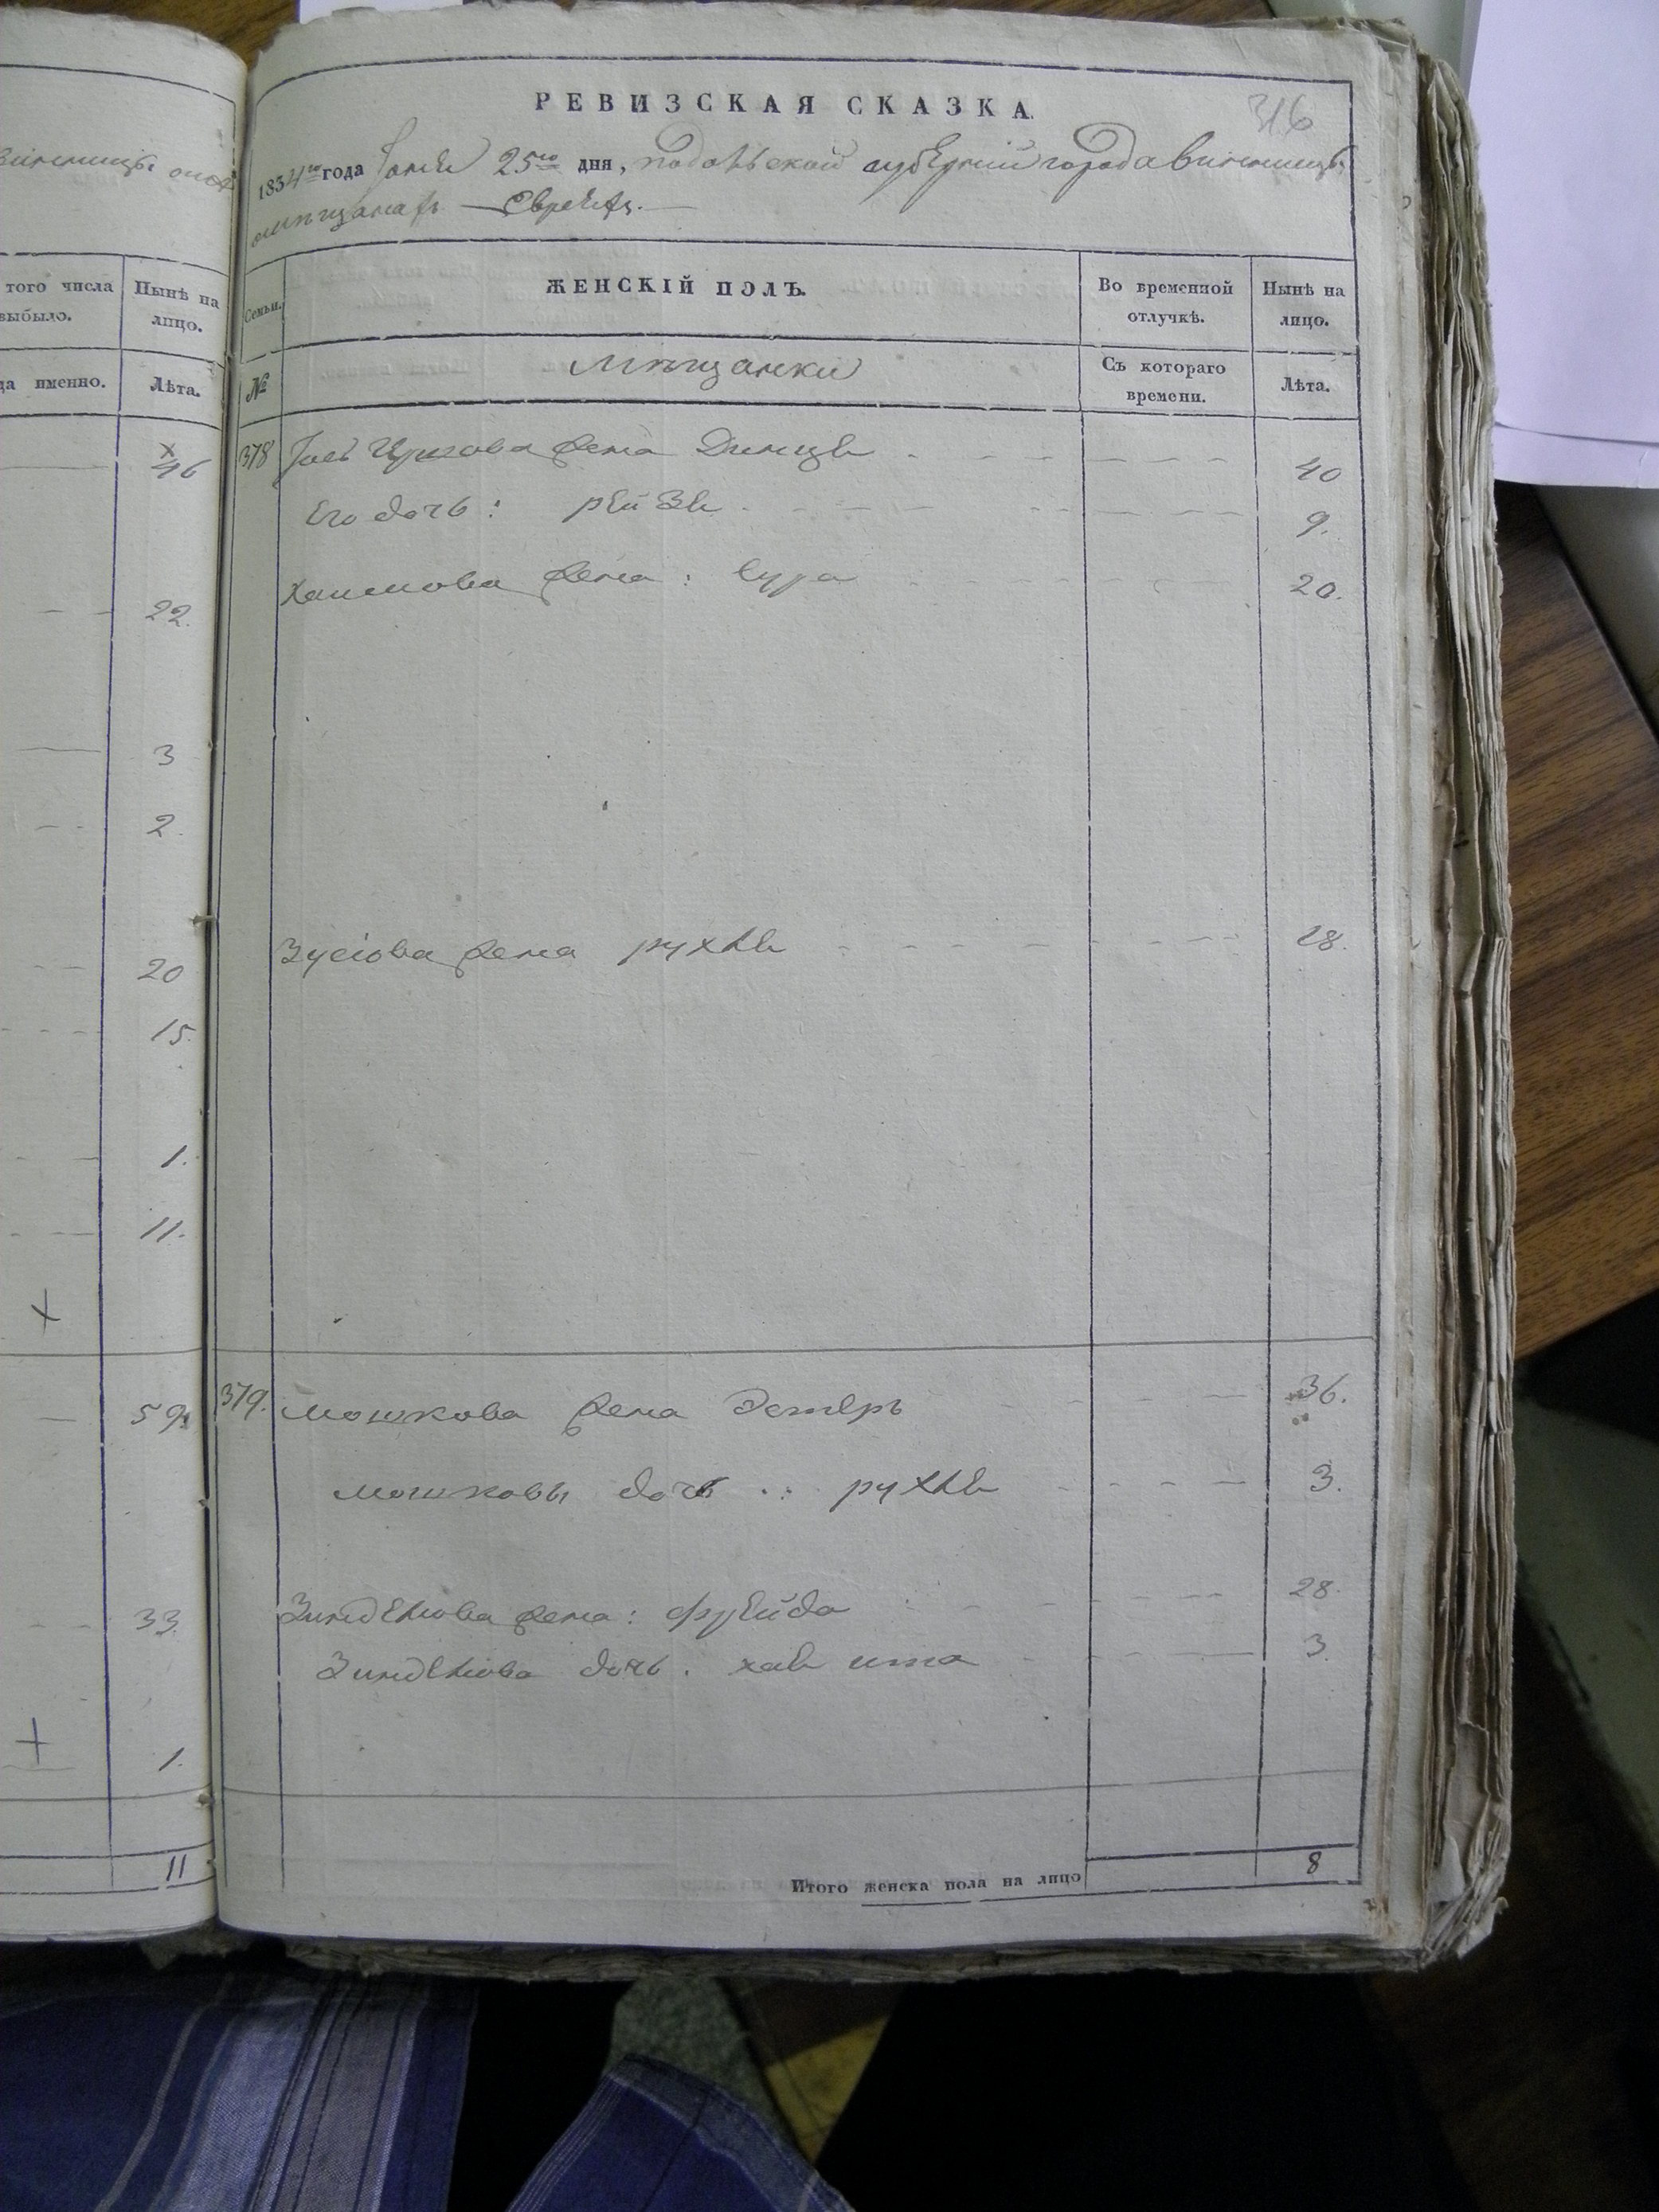 РЕВИЗСКАЯ СКАЗКА.
316
1834го года 25го дня, подольской губерніи города винницы
мѣщанах Евреях.
того числа выбыло.
Нынѣ на лицо.
Семьи.
ЖЕНСКІЙ ПОЛЪ.
Во временной отлучкѣ.
Нынѣ на лицо.
да именно.
Лѣта.
№
мѣщанки
Съ котораго времени.
Лѣта.
46
378 жена Динце 40
Его дочь: рейзе 9.
Хаимова жена: Сура 20.
22.
3
2.
Зусіова жена рухле 28.
20
15.
1.
11.
59
379. мошкова жена Эстеръ 36.
мошковы дочь: рухле 3.
33.
Зинделіова жена: фрейда 28.
Зинделіова дочь. хае ита 3.
1.
11
Итого женска пола на лицо 8